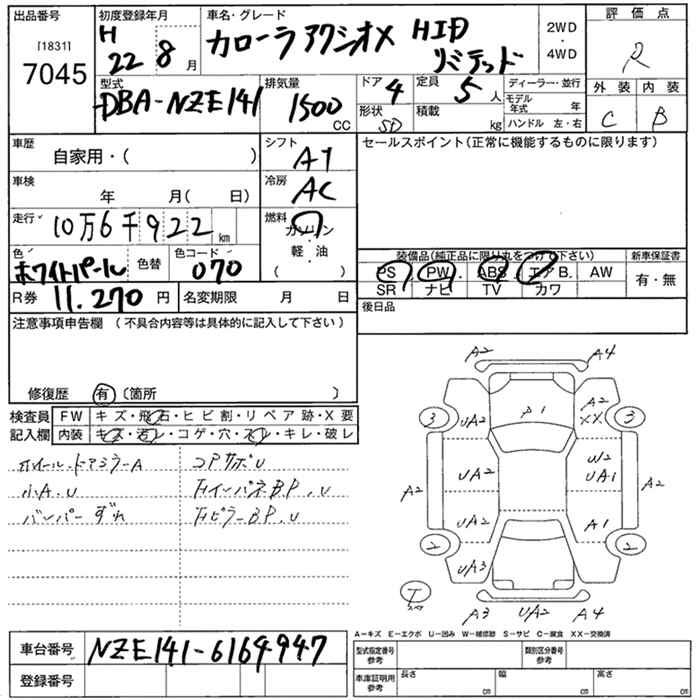 出品番号 初度登録年月 車名・グレード 評価点
[1831] 7045 H 22 8月 カローラアクシオX HID リミテッド 2WD・4WD R
型式 排気量 ドア 4 定員 5人 ディーラー・並行 外装 内装
DBA-NZE141 1500CC 形状 SD 積載 kg モデル年式 年 ハンドル 左・右 C B
車歴 シフト セールスポイント(正常に機能するものに限ります)
自家用・( ) AT
車検 冷房
年 月( 日) AC
走行 燃料
10万6千922km ガソリン・軽油 ( )
色 色替 色コード 装備品(純正品に限り丸をつけ下さい) 新車保証書
ホワイトパール 070 PS PW ABS エアB. AW 有・無
R券 11.270円 名変期限 月 日 SR ナビ TV カワ
注意事項申告欄 (不具合内容等は具体的に記入して下さい) 後日品
修復歴 有 〔箇所 〕
検査員記入欄 FW キズ・飛石・ヒビ割・リペア跡・X要
内装 キズ・汚レ・コゲ・穴・スレ・キレ・破レ
ホイール.ドアミラーA コアサポU
小A.U
バンパーずれ
A2 A4
3 UA2 A1 A2 XX 3
A2 UA2 W2 UA1 A2
UA2 A1
2 UA3 2
T
A3 UA2 A4
A-キズ E-エクボ U-凹み W-補修跡 S-サビ C-腐食 XX-交換済
車台番号 NZE141-6164947 型式指定番号 参考 類別区分番号 参考
登録番号 車庫証明用 参考 長さ cm 幅 cm 高さ cm